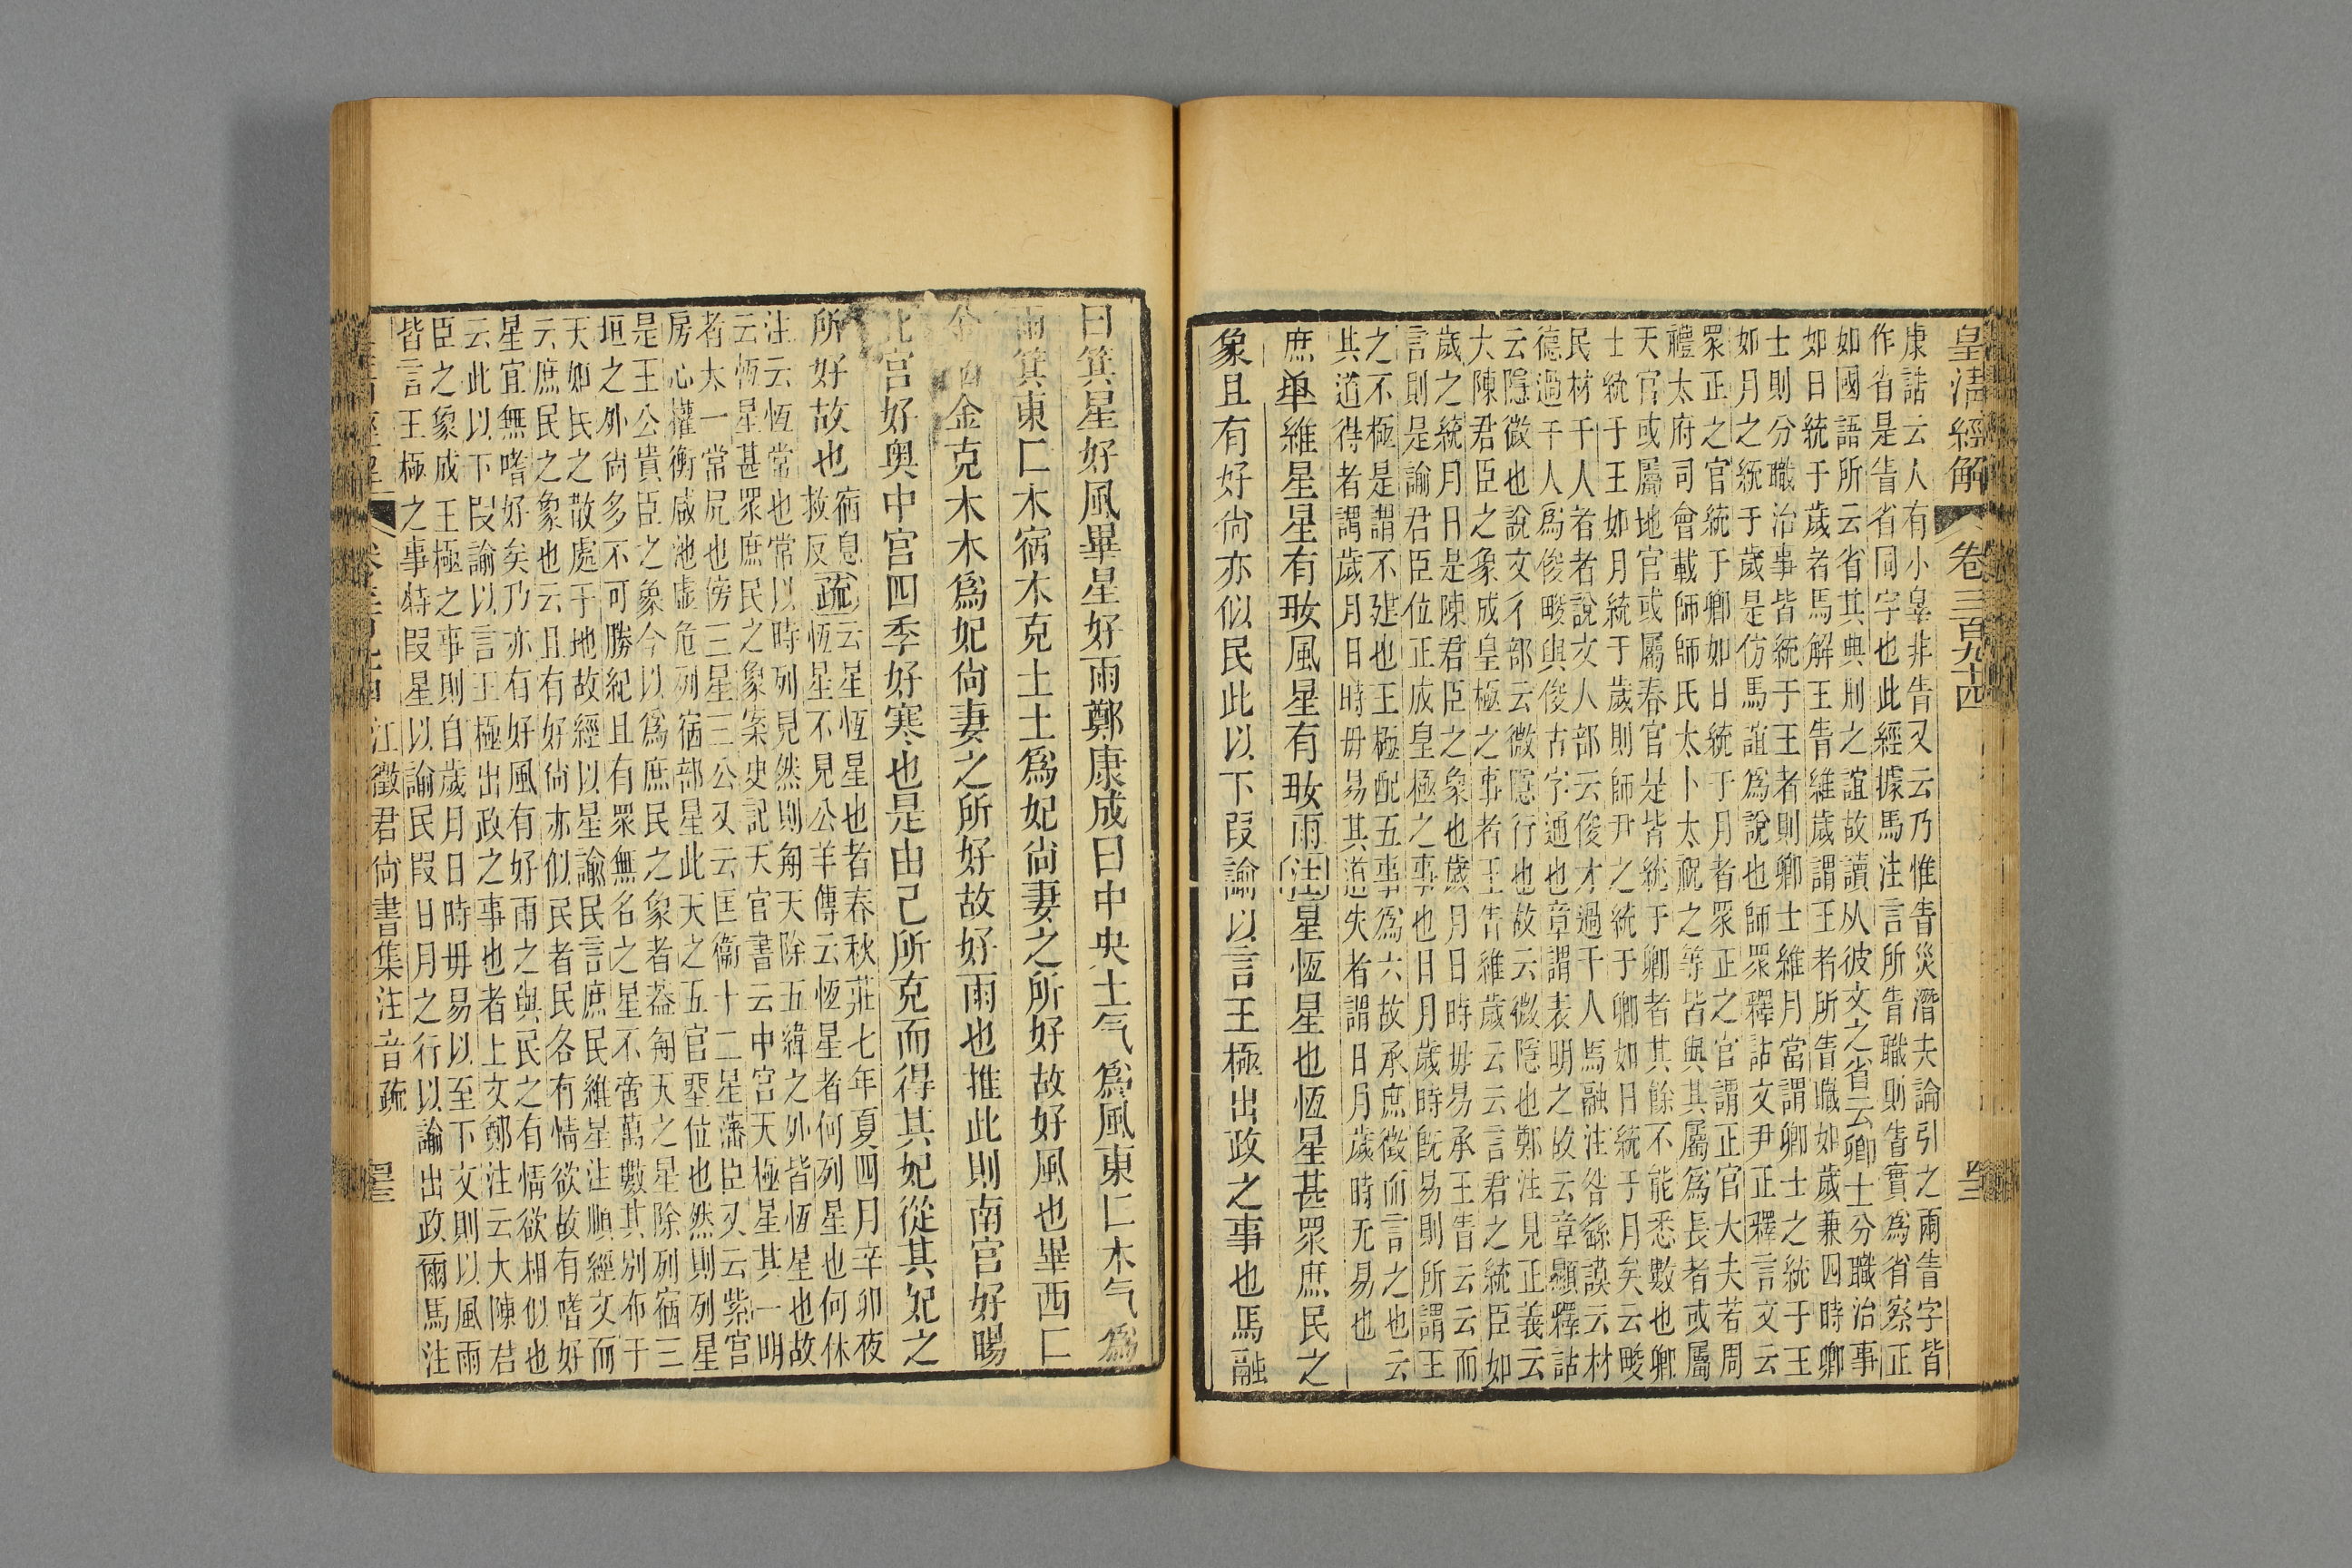 皇淸經解
卷三百九十四
康誥云人有小辠非眚又云乃惟眚災潛夫論引之兩眚字皆
作省是眚省同字也此經據馬注言所眚職則眚實爲省察正
如國語所云省其典刑之誼故讀从彼文之省云卿士分職治事
如日統于歲者馬解王眚維歲謂王者所眚職如歲兼四時卿
士則分職治事皆統于王者則卿士維月當謂卿士之統于王
如月之統于歲是仿馬誼爲說也師眾釋詁文尹正釋言文云
眾正之官統于卿如日統于月者眾正之官謂正官大夫若周
禮太府司會載師師氏太卜太祝之等皆與其屬爲長者或屬
天官或屬地官或屬春官是皆統于卿者其餘不能悉數也卿
士統于王如月統于歲則師尹之統于卿如日統于月矣云畯
民材千人者者說文人部云俊才過千人馬融注咎繇謨云材
德過千人爲俊畯與俊古字通也章謂表明之故云章顯釋詁
云隱微也說文彳部云微隱行也故云微隱也鄭注見正義云
大陳君臣之象成皇極之事者王眚維歲云云言君之統臣如
歲之統月日是陳君臣之象也歲月日時毋易承王眚云云而
言則是諭君臣位正成皇極之事也日月歲時旣易則所謂王
之不極是謂不建也王極配五事爲六故承庶徵而言之也云
其道得者謂歲月日時毋易其道失者謂日月歲時无易也
庶民維星星有𡚽風星有𡚽雨注星恆星也恆星甚眾庶民之
象且有好尙亦似民此以下叚諭以言王極出政之事也馬融
曰箕星好風畢星好雨鄭康成曰中央土气爲風東匚木气爲
雨箕東匚木宿木克土土爲妃尙妻之所好故好風也畢西匚
金宿金克木木爲妃尙妻之所好故好雨也推此則南宫好暘
北宫好奥中宫四季好寒也是由己所克而得其妃從其妃之
所好故也
宿息救反疏云星恆星也者春秋莊七年夏四月辛卯夜
恆星不見公羊傳云恆星者何列星也何休
注云恆常也常以時列見然則匊天除五緯之外皆恆星也故
云恆星甚眾庶民之象案史記天官書云中宫天極星其一明
者太一常凥也傍三星三公又云匡衞十二星藩臣又云紫宫
房心權衡咸池虛危列宿部星此天之五官坐位也然則列星
是王公貴臣之象今以爲庶民之象者葢匊天之星除列宿三
垣之外尙多不可勝紀且有眾無名之星不啻萬數其別布于
天如民之散處于地故經以星諭民言庶民維星注順經文而
云庶民之象也云且有好尙亦似民者民各有情欲故有嗜好
星宜無嗜好矣乃亦有好風有好雨之與民之有情欲相似也
云此以下叚諭以言王極出政之事也者上文鄭注云大陳君
臣之象成王極之事則自歲月日時毋易以至下文則以風雨
皆言王極之事特叚星以諭民叚日月之行以諭出政爾馬注
江徵君尙書集注音疏